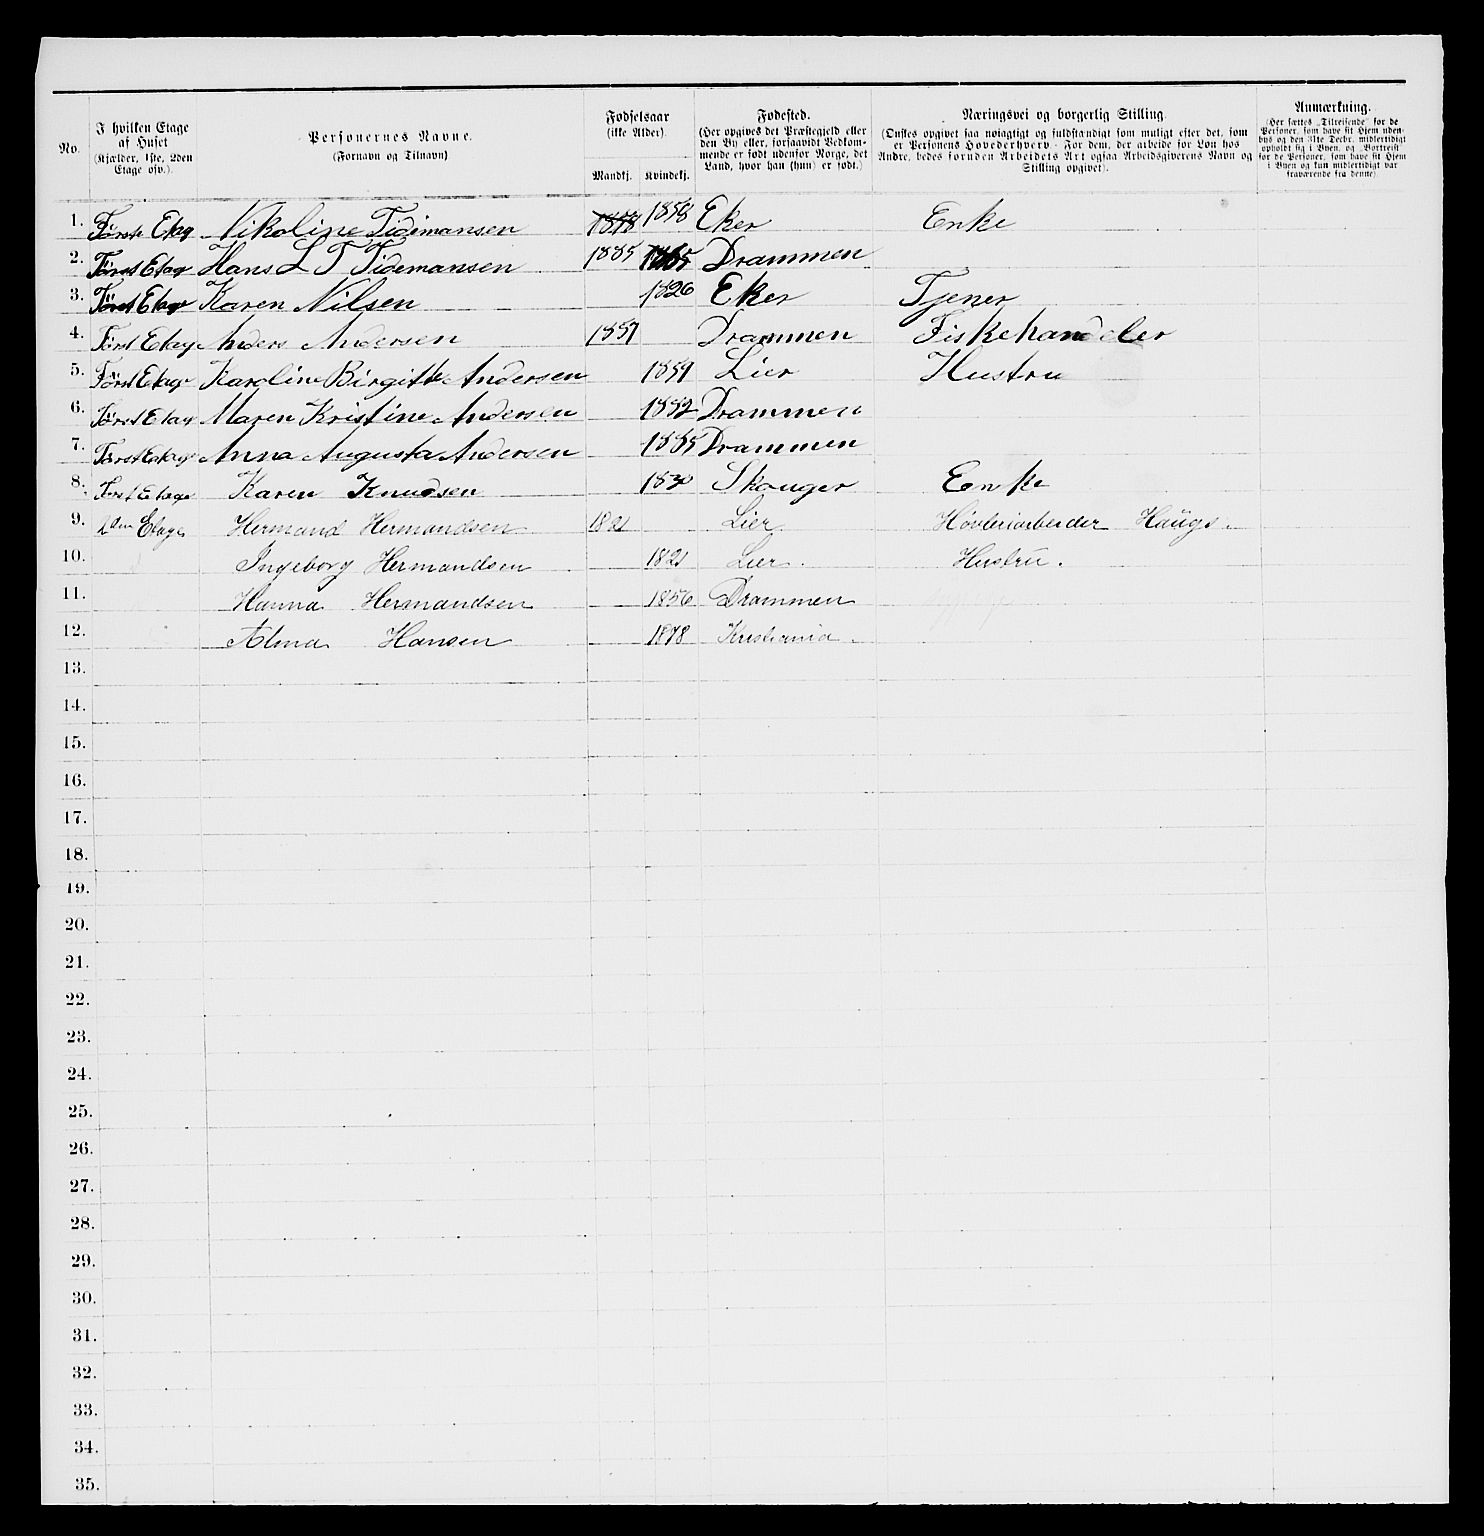 No.
I hvilken Etage af Huset (Kjælder, 1ste, 2den Etage osv.).
Personernes Navne. (Fornavn og Tilnavn)
Fødselsaar (ikke Alder). Mandkj. Kvindekj.
Fødested. (Her opgives det Præstegjeld eller den By eller, forsaavidt Vedkommende er født udenfor Norge, det Land, hvor han (hun) er født.)
Næringsvei og borgerlig Stilling. (Ønskes opgivet saa nøiagtigt og fuldstændigt som muligt efter det, som er Personens Hovederhverv. - For dem, der arbeide for Løn hos Andre, bedes foruden Arbeidets Art ogsaa Arbeidsgiverens Navn og Stilling opgivet).
Anmærkning. (Her sættes „Tilreisende" for de Personer, som have sit Hjem udenbys og den 31te Decbr. midlertidigt opholdt sig i Byen, og „Bortreist" for de Personer, som have sit Hjem i Byen og kun midlertidigt var fraværende fra denne).
1. Først Etag Nikoline Tidemansen 1858 1858 Eker Enke
2. Først Etag Hans L T Tidemansen 1885 1885 Drammen
3. Først Etag Karen Nilsen 1826 Eker Tjener
4. Først Etag Anders Andersen 1857 Drammen Fiskehandeler
5. Først Etage Karoline Birgitte Andersen 1859 Lier Hustru
6. Først Etag Maren Kristine Andersen 1882 Drammen
7. Først Etage Anna Augusta Andersen 1885 Drammen
8. Først Etage Karen Knudsen 1830 Skouger Enke
9. 2den Etage Hermand Hermandsen 1821 Lier Høvleriarbeider Haugs.
10. Ingeborg Hermandsen 1821 Lier. Hustru.
11. Hanna Hermandsen 1856 Drammen
12. Alma Hansen 1878 Kristiania
13.
14.
15.
16.
17.
18.
19.
20.
21.
22.
23.
24.
25.
26.
27.
28.
29.
30.
31.
32.
33.
34.
35.